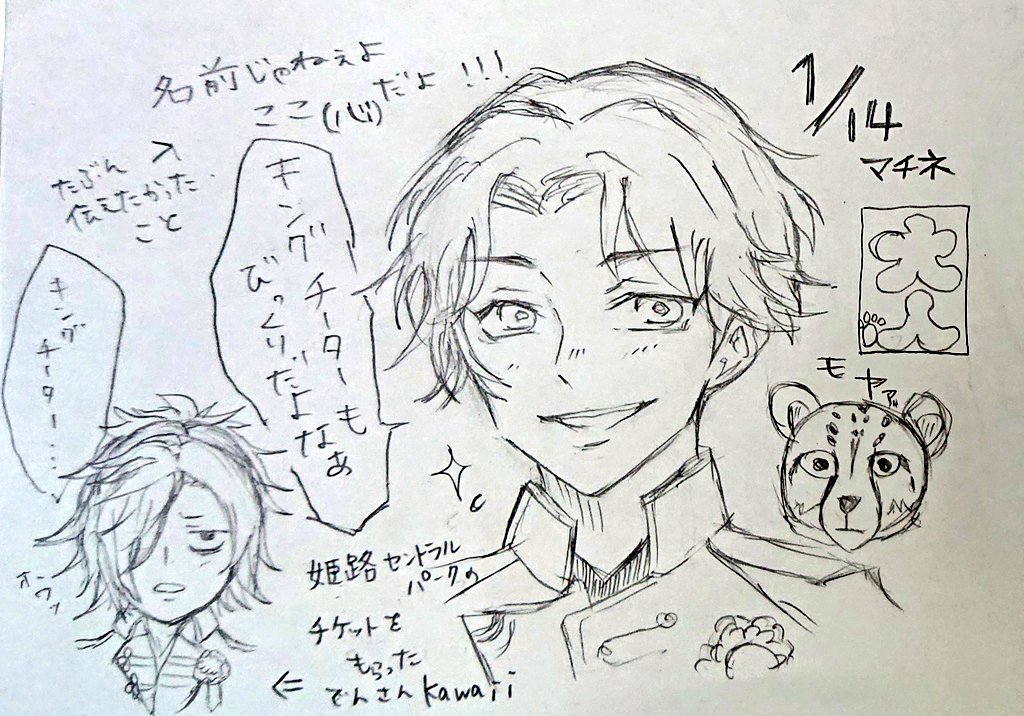 名前じゃねぇよ
ここ(心)だよ!!!
たぶん
伝えたかった
こと
キングチーターも
びっくりだよなぁ
キング
チーター…
オーウッ
1/14
マチネ
大入
モヤァ
姫路セントラル
パークの
チケットを
もらった
でんさんkawaii